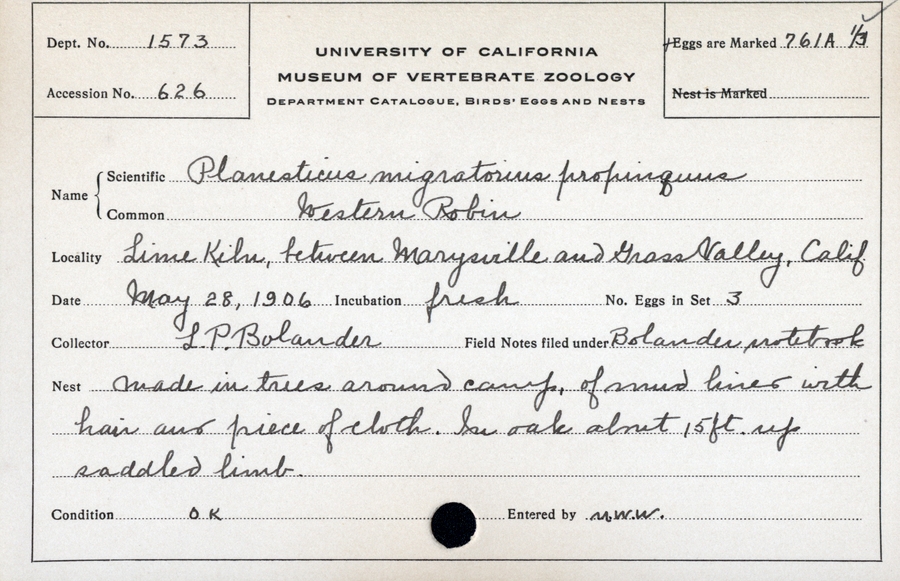 Dept. No. 1573
Accession No. 626
UNIVERSITY OF CALIFORNIA
MUSEUM OF VERTEBRATE ZOOLOGY
DEPARTMENT CATALOGUE, BIRDS' EGGS AND NESTS
Eggs are Marked 761A 1/3
Nest is Marked
Name
Scientific Planesticus migratorius propinquus
Common Western Robin
Locality Lime Kiln, between Marysville and Grass Valley, Calif
Date May 28, 1906 Incubation fresh No. Eggs in Set 3
Collector L.P. Bolander Field Notes filed under Bolander notebook
Nest made in trees around camp, of mud lined with
hair and piece of cloth. In oak about 15ft. up
saddled limb.
Condition OK Entered by M.W.W.